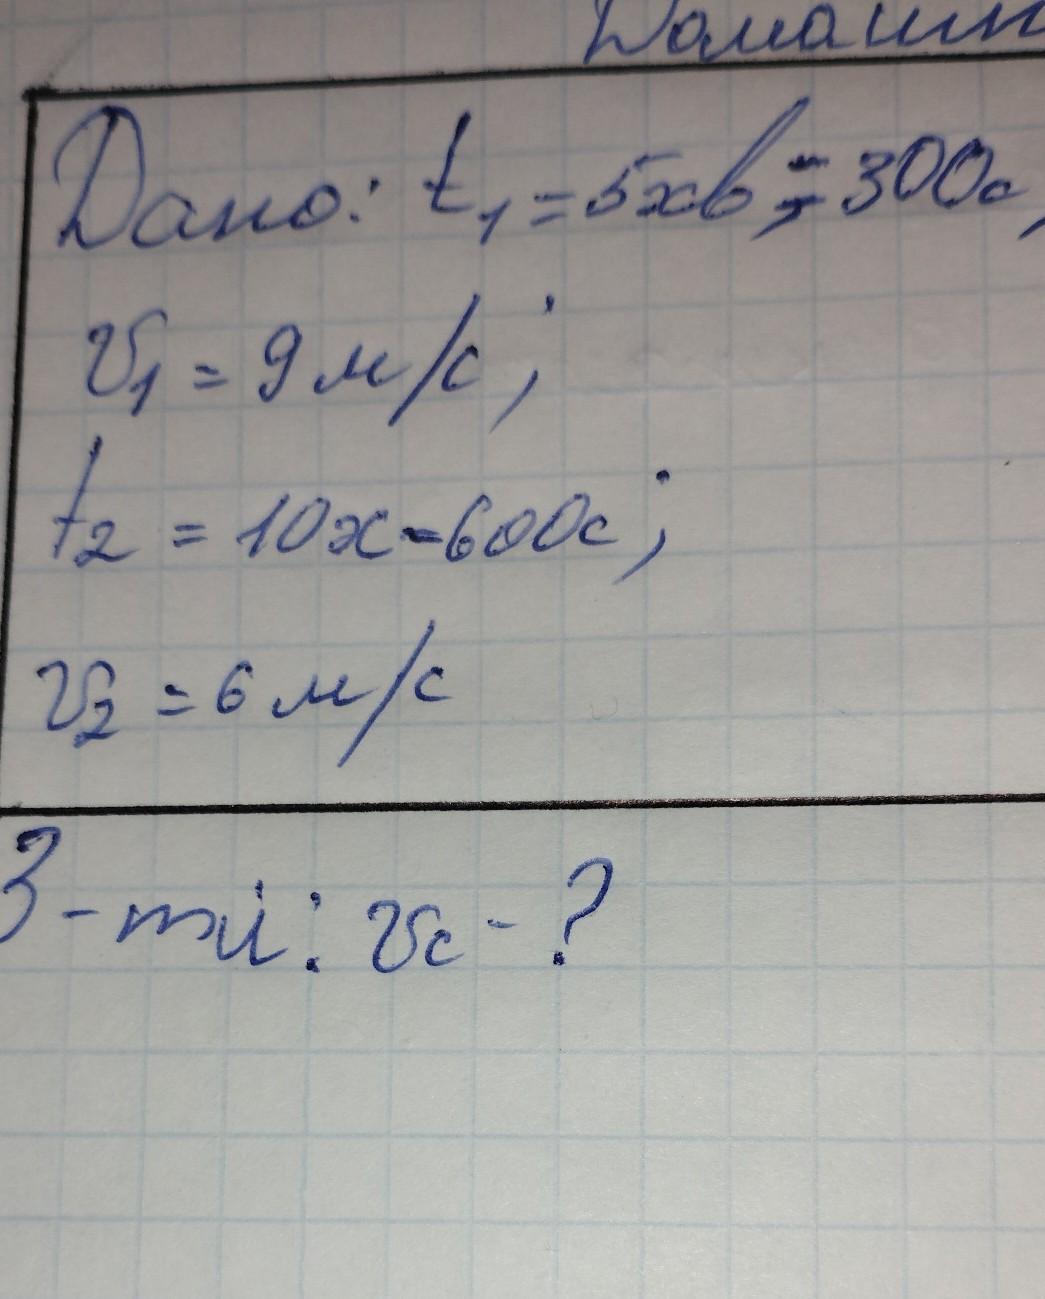 Домашн
Дано: t₁ = 5хв; = 300с,
v₁ = 9 м/с;
t₂ = 10х = 600с;
v₂ = 6 м/с
З-ти: vс - ?